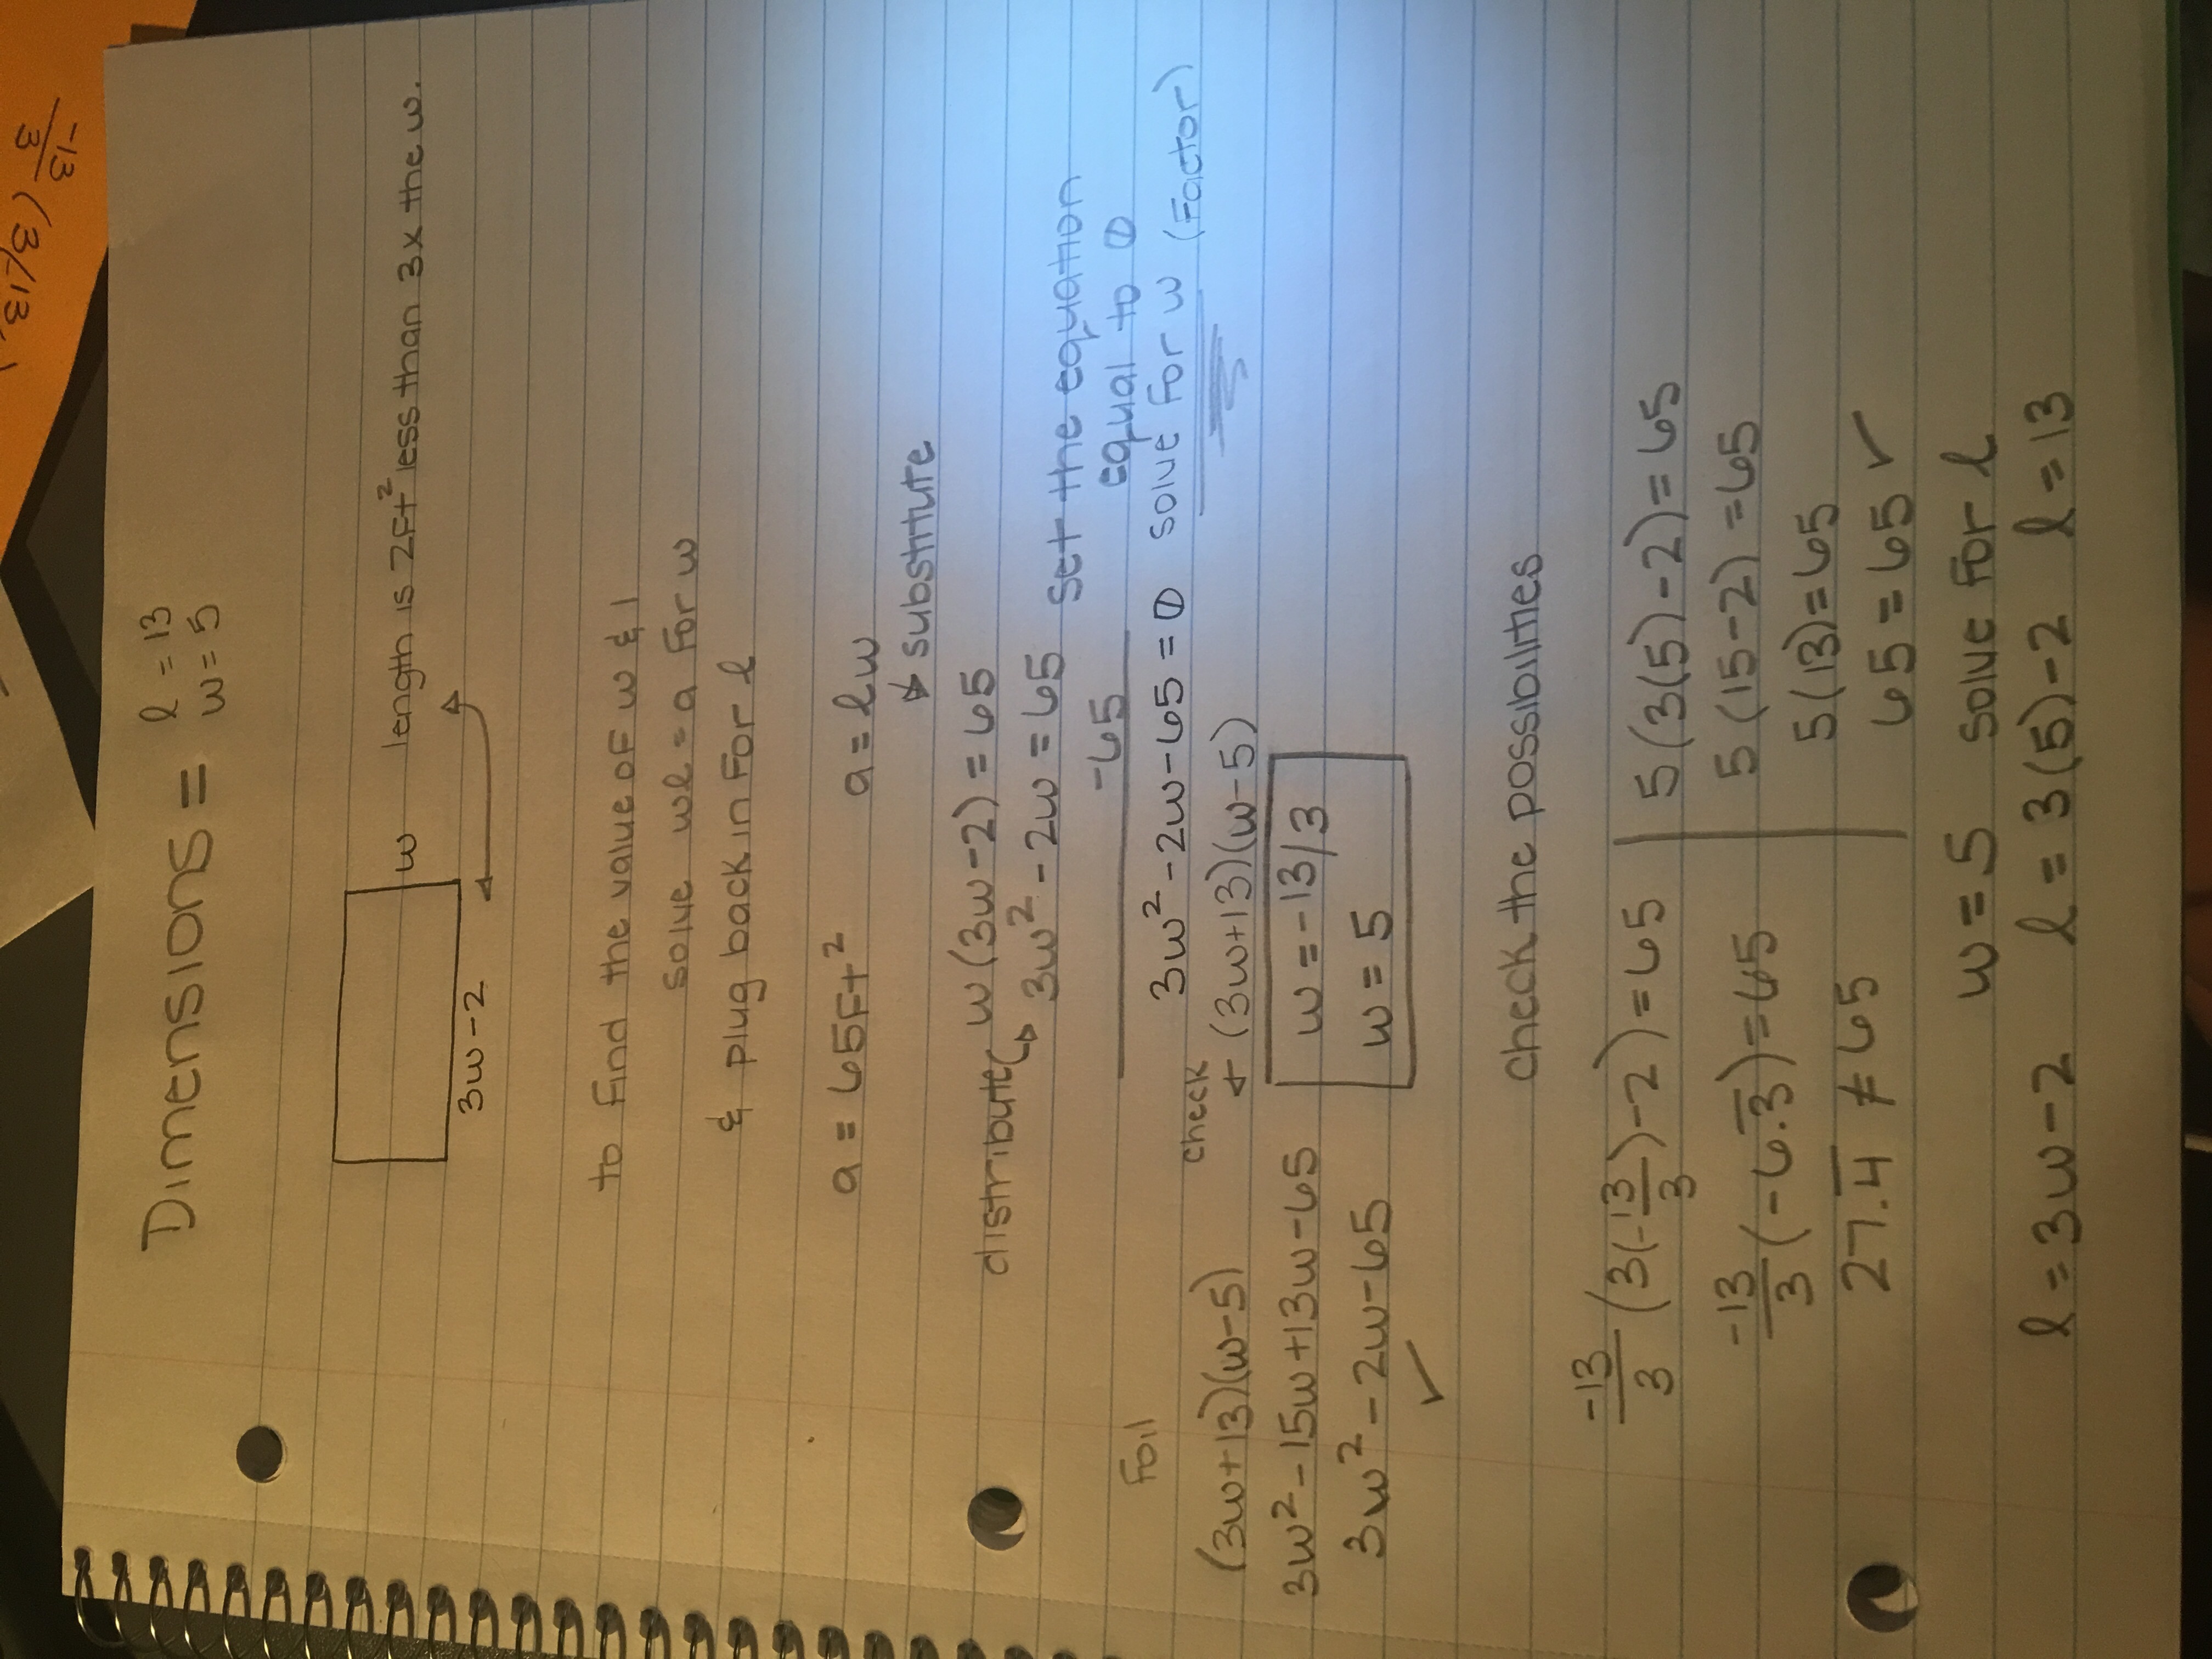 Dimensions = l = 13
w = 5
w length is 2Ft² less than 3x the w.
3w-2
to find the value of w & l
solve wl = a for w
& plug back in for l
a = 65Ft² a = lw
↳ substitute
distribute w(3w-2) = 65
↳ 3w² - 2w = 65 set the equation
-65 equal to 0
3w² - 2w - 65 = 0 solve for w (Factor)
Foil check
(3w+13)(w-5) ← (3w+13)(w-5)
3w² - 15w + 13w - 65 w = -13/3
3w² - 2w - 65 w = 5
✓
check the possibilities
-13/3 (3(-13/3) - 2) = 65 5(3(5) - 2) = 65
-13/3 (-6.3̅) = 65 5(15-2) = 65
5(13) = 65
27.4̅ ≠ 65 65 = 65 ✓
w = 5 solve for l
l = 3w - 2 l = 3(5) - 2 l = 13
-13/3